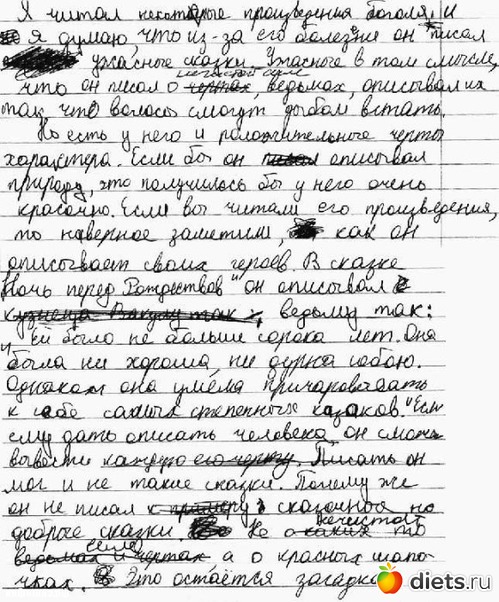 Я читал некоторые произведения Гоголя, и
я думаю, что из-за его болезни он писал
ужасные сказки. Ужасные в том смысле,
нечистой силе
что он писал о чертях, ведьмах, описывал их
так, что волосы смогут дыбом встать.
Но есть у него и положительные черты
характера. Если бы он писал описывал
природу, это получилось бы у него очень
красочно. Если вы читали его произведения,
то наверное заметили, как он
описывает своих героев. В сказке
"Ночь перед Рождеством" он описывал
кузнеца Вакулу так, ведьму так:
"Ей было не больше сорока лет. Она
была ни хороша, ни дурна собою.
Однако она умела причаровывать
к себе самых степенных казаков." Если
ему дать описать человека, он сможет
вывести каждую его черту. Писать он
мог и не такие сказки. Почему же
он не писал к примеру сказочные но
добрые сказки. Не о каких то
нечистой
силе
ведьмах и чертах а о красных шапо-
чках. Это остаётся загадкой
diets.ru